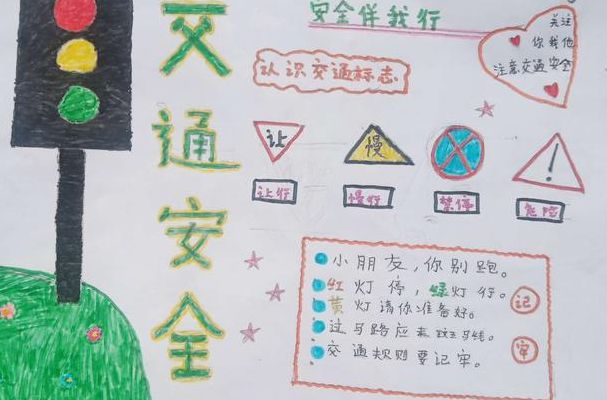 交通安全
安全伴我行
关注
你我他
注意交通安全
认识交通标志
让
慢
!
让行
慢行
禁停
危险
小朋友,你别跑。
红灯停,绿灯行。
黄灯请你准备好。
过马路应走斑马线。
交通规则要记牢。
记
牢